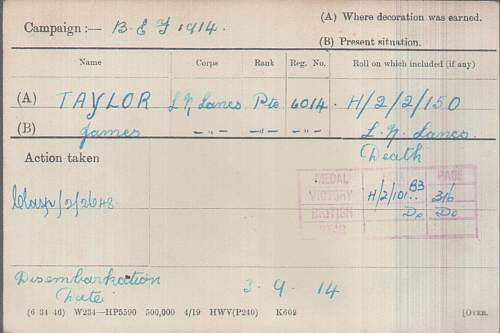 Campaign :— B.E.F 1914.
(A) Where decoration was earned.
(B) Present situation.
Name Corps Rank Reg. No. Roll on which included (if any)
(A) TAYLOR L N Lancs Pte 6014. H/2/2/150
(B) James —"— —"— —"— L. N. Lancs.
Death
Action taken
MEDAL PAGE
VICTORY H/2/101 B3 316
BRITISH Do Do
Clasp/2/2648.
Disembarkation
Date 3. 9. 14
(6 34 46) W234—HP5590 500,000 4/19 HWV(P240) K608
[OVER.